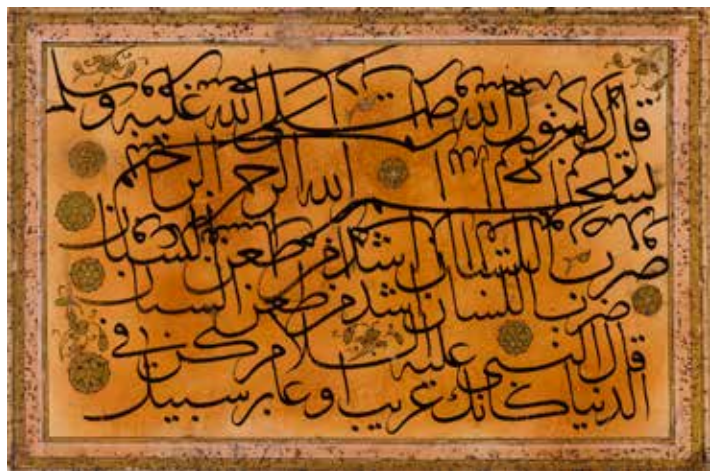 قال رسول الله صلى الله عليه وسلم
بسم الله الرحمن الرحيم
ضرب اللسان اشد من طعن السنان
ضرب اللسان اشد من طعن السنان
قال النبي عليه السلام كن في
الدنيا كانك غريب او عابر سبيل